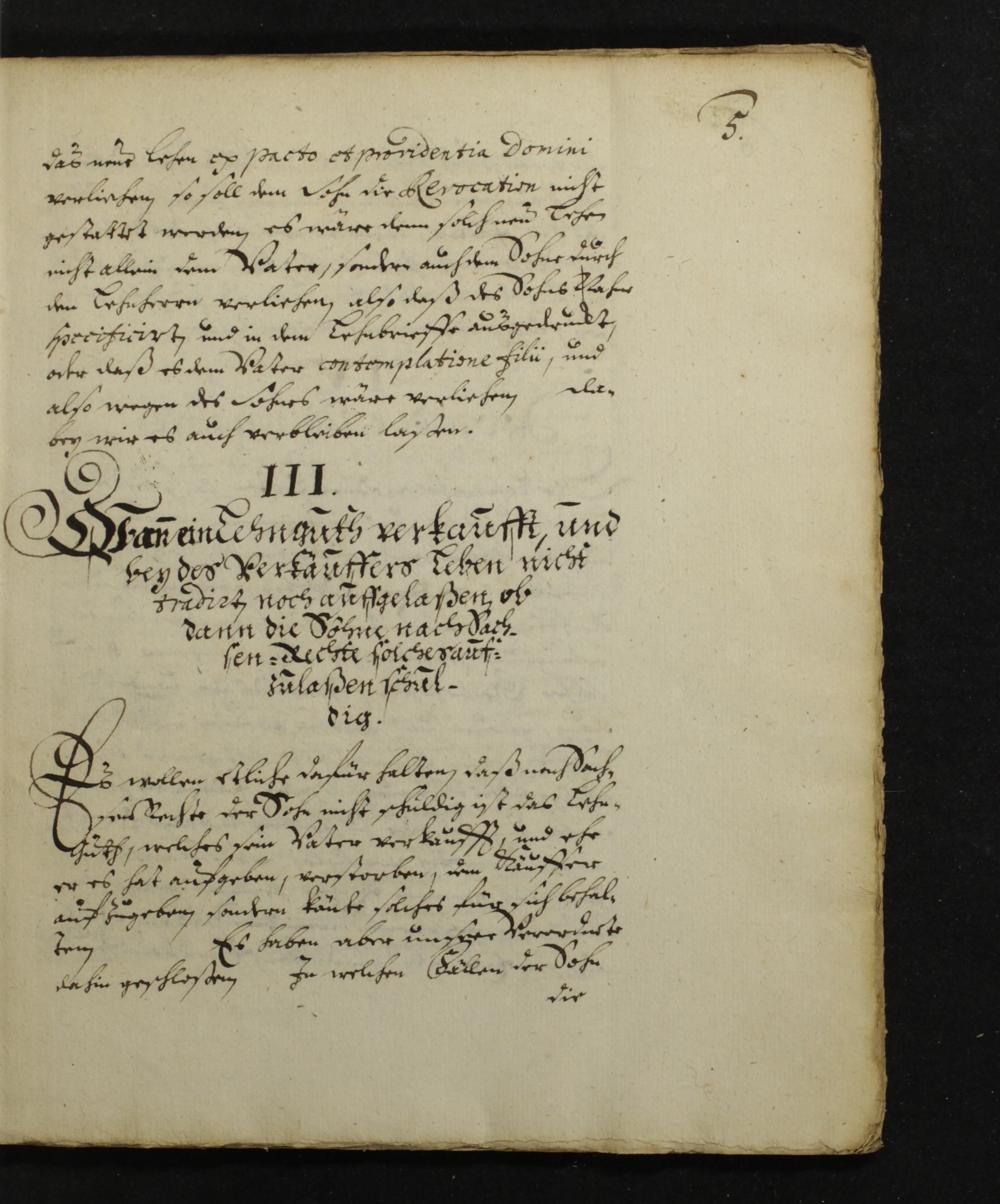 5.
das neue Lehen ex pacto et providentia Domini
verliehen, so soll dem Sohn die Revocation nicht
gestattet werden, es wäre denn solch neu Lehen
nicht allein dem Vater, sondern auch dem Sohne durch
den Lehnherrn verliehen, also daß des Sohns Nahme
specificirt, und in dem Lehnbrieffe ausgedruckt,
oder daß es dem Vater contemplatione filii, und
also wegen des Sohnes wäre verliehen, da-
bey wir es auch verbleiben laßen.
III.
Wann ein Lehnguth verkaufft, und
bey des Verkäuffers Leben nicht
tradirt, noch auffgelaßen, ob
dann die Söhne nach Sach-
sen-Rechte solches auf-
zulaßen schul-
dig.
Es wollen etliche dafür halten, daß nach Sach-
sen Rechte der Sohn nicht schuldig ist das Lehn-
Guth, welches sein Vater verkaufft, und ehe
er es hat aufgeben, verstorben, dem Käuffer
aufzugeben, sondern könte solches für sich behal-
ten, Es haben aber unsere Verordnete
dahin geschloßen, In welchen Fällen der Sohn
die